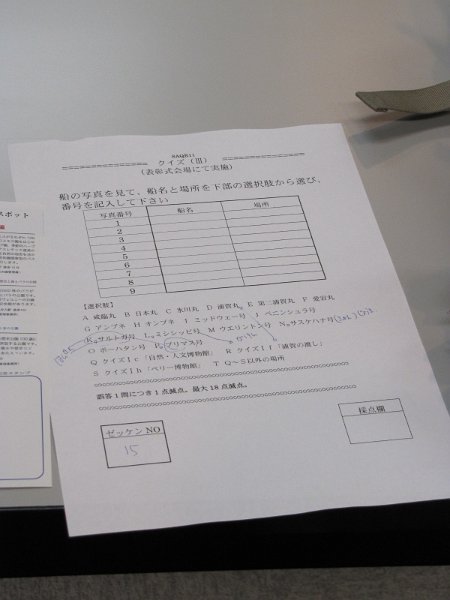 クイズ(Ⅲ)
(表彰式会場にて実施)
船の写真を見て、船名と場所を下部の選択肢から選び、
番号を記入して下さい
写真番号 船名 場所
1
2
3
4
5
6
7
8
9
【選択肢】
A 咸臨丸 B 日本丸 C 氷川丸 D 浦賀丸 E 第二浦賀丸 F 愛宕丸
G アンプネ H オンプネ I ミッドウェー号 J ペニンシュラ号
K サルトガ号 L ミシシッピ号 M ウエリントン号 N サスケハナ号
O ポーハタン号 P プリマス号
Q クイズⅠc「自然・人文博物館」 R クイズⅠf「浦賀の渡し」
S クイズⅠb「ペリー博物館」 T Q~S以外の場所
誤答1問につき1点減点。最大18点減点。
ゼッケンNO
15
採点欄
スポット